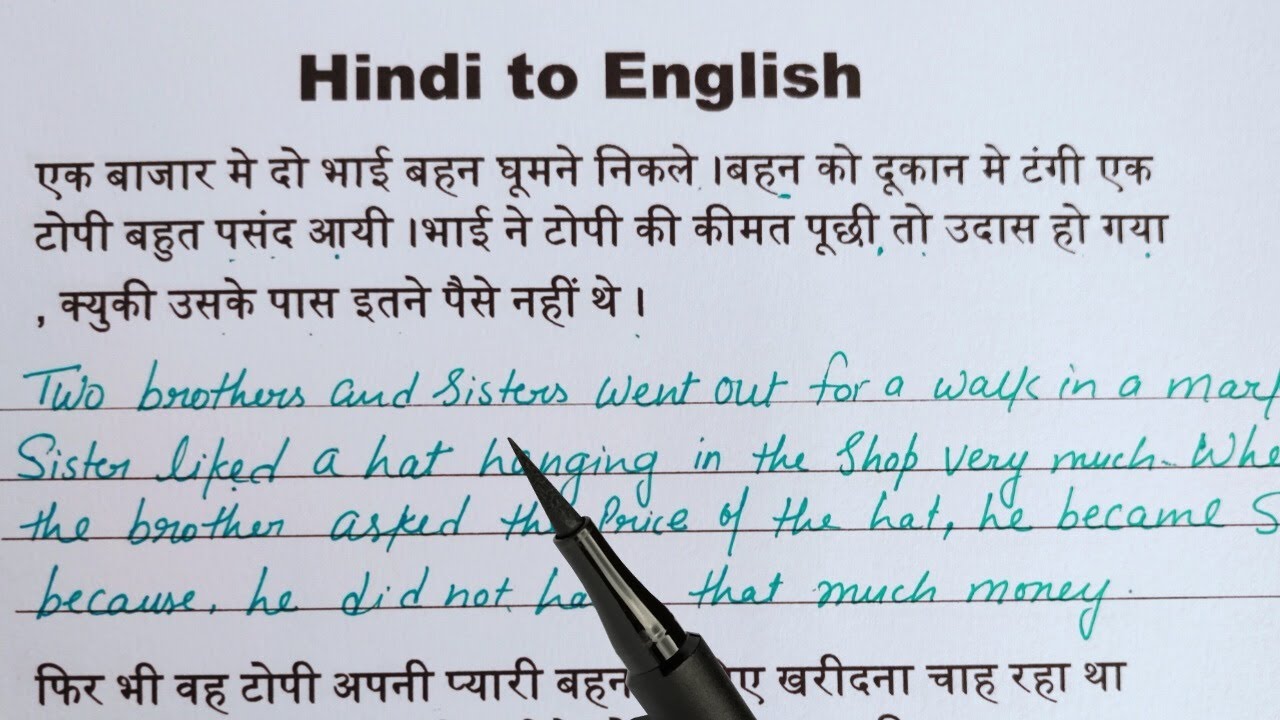 Hindi to English
एक बाजार मे दो भाई बहन घूमने निकले ।बहन को दूकान मे टंगी एक
टोपी बहुत पसंद आयी ।भाई ने टोपी की कीमत पूछी तो उदास हो गया
, क्युकी उसके पास इतने पैसे नहीं थे ।
Two brothers and Sisters went out for a walk in a
Sister liked a hat hanging in the Shop very much.
the brother asked the Price of the hat, he became
because, he did not that much money.
फिर भी वह टोपी अपनी प्यारी बहन खरीदना चाह रहा था